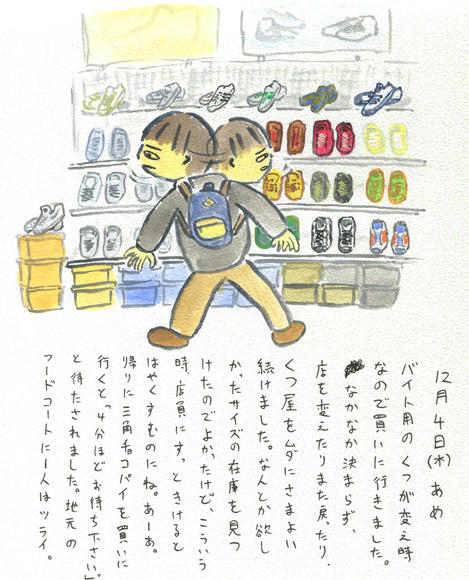 12月4日(木) あめ
バイト用のくつが変え時
なので買いに行きました。
なかなか決まらず、
店を変えたりまた戻ったり・
くつ屋をムダにさまよい
続けました。なんとか欲し
かったサイズの在庫を見つ
けたのでよかったけど、こういう
時、店員にすっときけると
はやくすむのにね。あーあ。
帰りに三角チョコパイを買いに
行くと「4分ほどお待ち下さい」。
と待たされました。地元の
フードコートに1人はツライ。